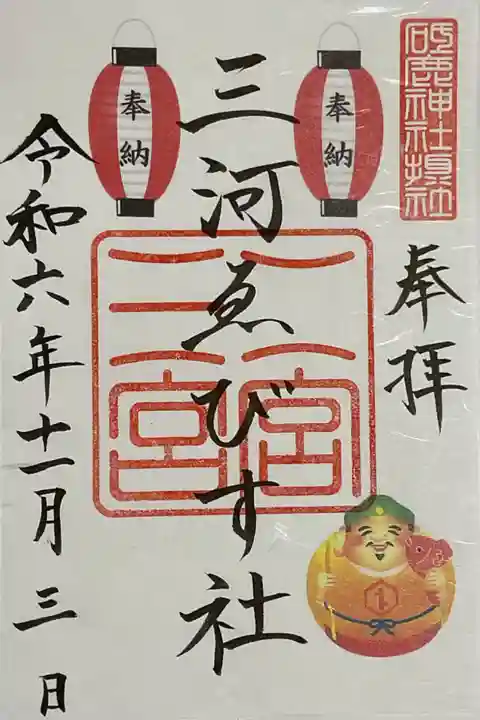 砥鹿神社境内社
奉拝
奉納
奉納
三河ゑびす社
三宮
一宮
令和六年十一月三日